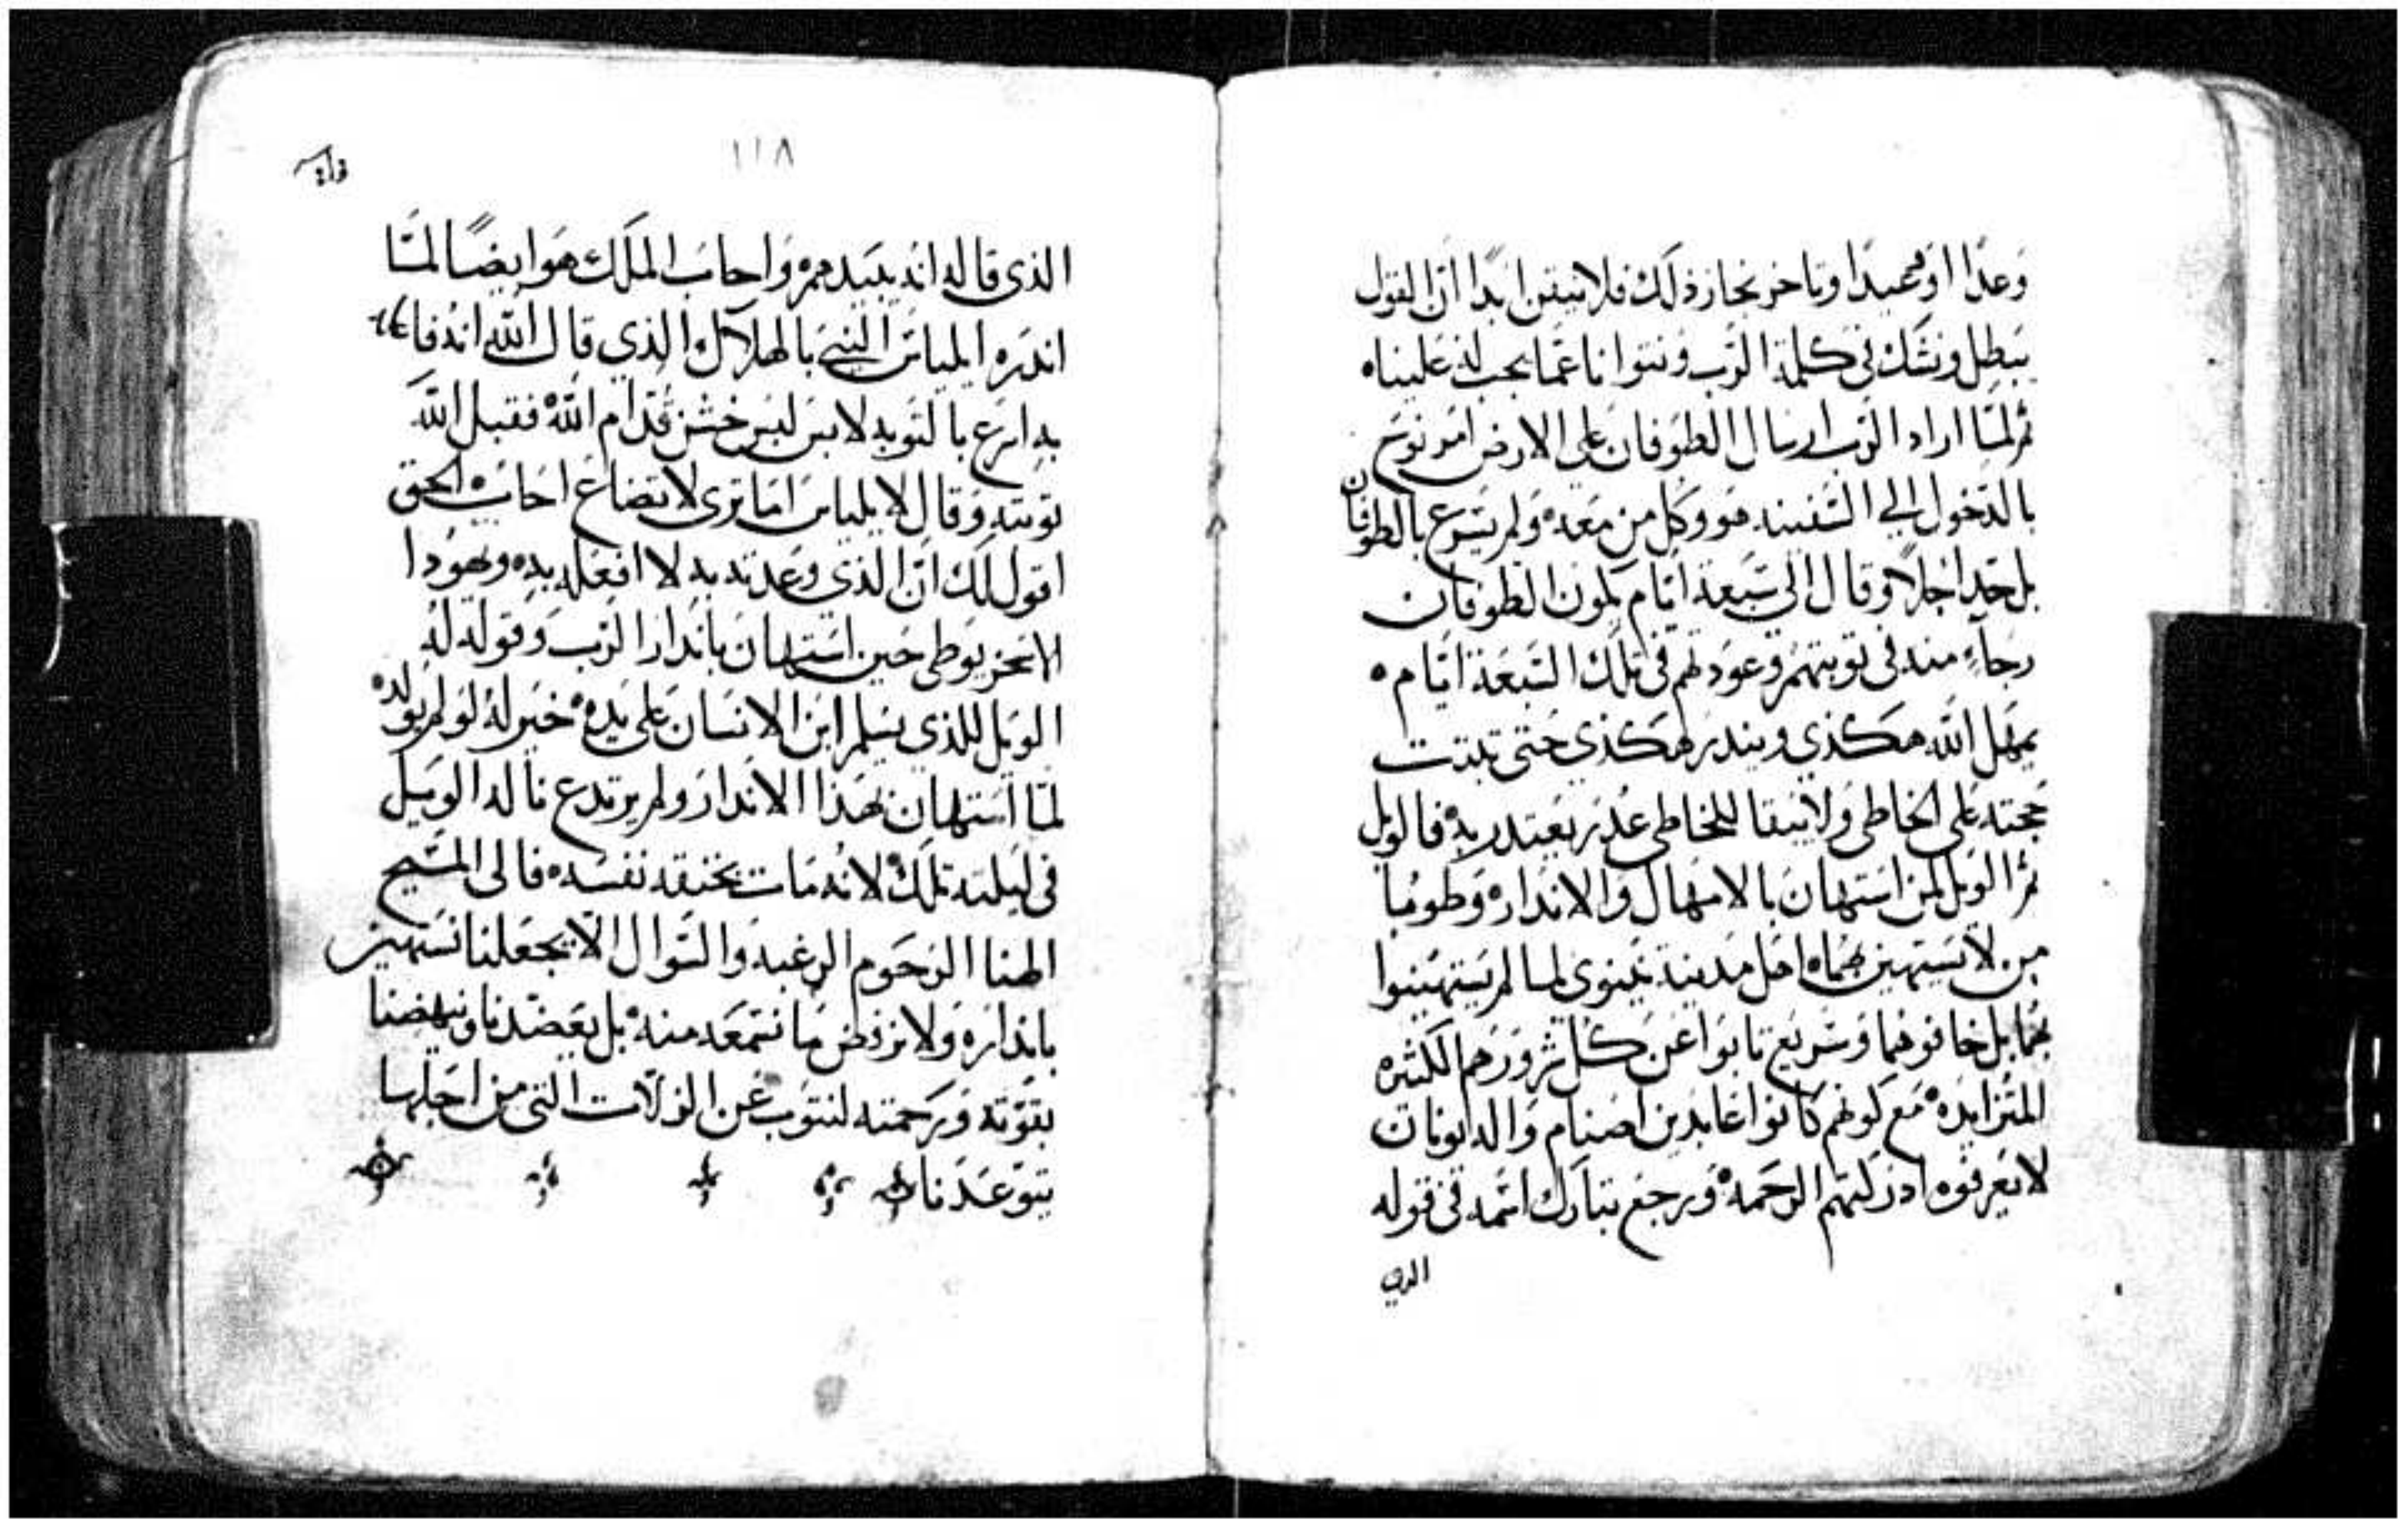 وعدًا او محميدا وتاخر نجاز ذلك فلا نتيقن ابدًا ان القول
يبطل ونشك في كلمة الرب ونتوانا عمّا يجب له علينا
ثم لمّا اراد الرب ارسال الطوفان على الارض امر نوح
بالدخول الي السفينه هو وكل من معه ولم يسرع بالطوفان
بل حد اجلاً وقال الى سبعة ايّام يكون الطوفان
رجاءٍ منه في توبتهم وعودتهم في تلك السبعة ايّام
يمهل الله هكذي ويندر هكذي حتى تبتت
حجته على الخاطي ولا يبقا للخاطي عدر يعتدر به فالويل
ثم الويل لمن استهان بالامهال والاندار وطوبا
من لا يستهين بهما اهل مدينة نينوى لما لم يستهينوا
بهما بل خافوهما وسريع تابوا عن كل شرورهم الكثيره
المتزايده مع كونهم كانوا عابدين اصنام والله
لا يعرفوه ادركتهم الرحمه ويرجع تبارك اسمه في قوله
الذي
١١٨
الذي قاله انه يبيدهم واحاب الملك هو ايضًا لمّا
اندره ايلياس النبي بالهلاك الذي قال الله انه
به اسرع بالتوبه لابس لبس خشن قدام الله فقبل الله
توبته وقال لايلياس اما ترى لاتضاع احاب الحق
اقول لك ان الذي وعدته به لا افعله به ويهودا
الاسخريوطى حين استهان باندار الرب وقوله له
الويل للذي يسلم ابن الانسان على يده خير له لو لم يولد
لمّا استهان بهذا الاندار ولم يرتدع ناله الويل
فى ليلته تلك لانه مات بخنقه نفسه فالى المسيح
الهنا الرحوم الرغبه والسوال الا يجعلنا نستهين
بانداره ولا نرفض ما نسمعه منه بل يعضدنا وينهضنا
بقوته ورحمته لنتوب عن الزلات التى من اجلها
يتوعدنا